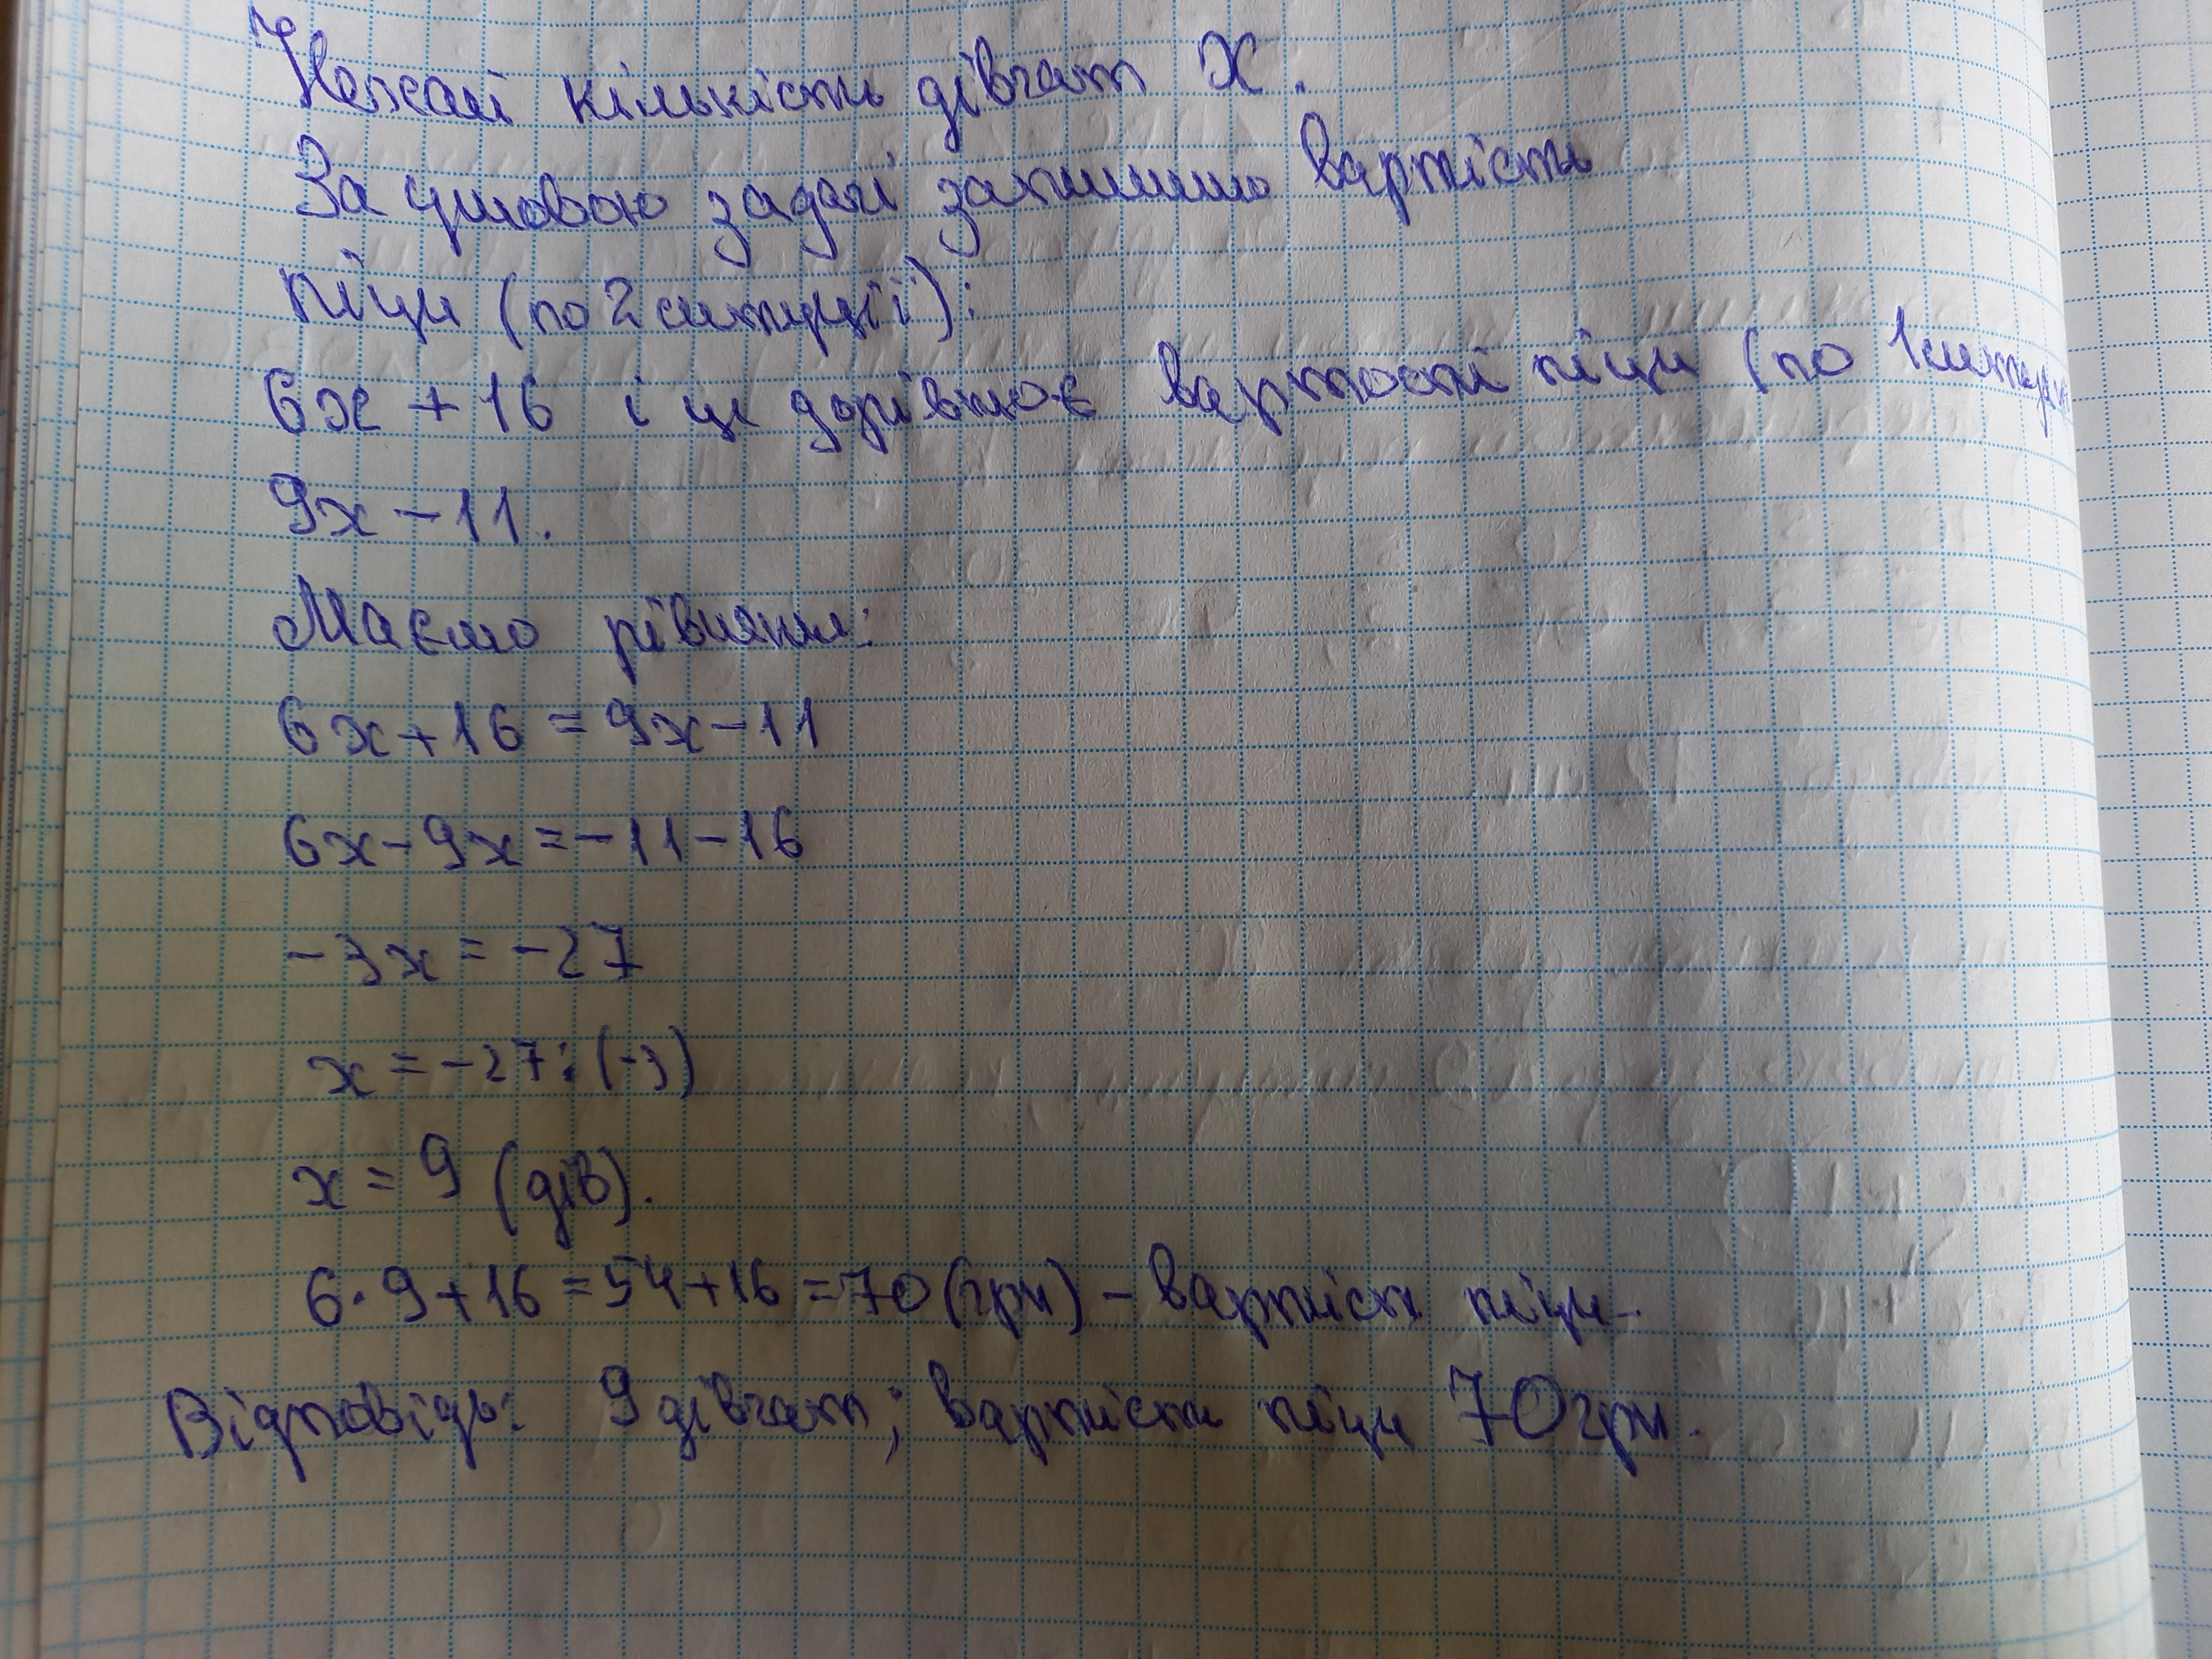 Нехай кількість дівчат x.
За умовою задачі запишемо вартість
піци (по 2 ситуції):
6x + 16 і це дорівнює вартості піци (по 1
9x - 11.
Маємо рівняння:
6x+16 = 9x-11
6x-9x=-11-16
-3x = -27
x = -27:(-3)
x = 9 (дів).
6·9+16=54+16=70(грн) - вартість піци.
Відповідь: 9 дівчат; вартість піци 70грн.